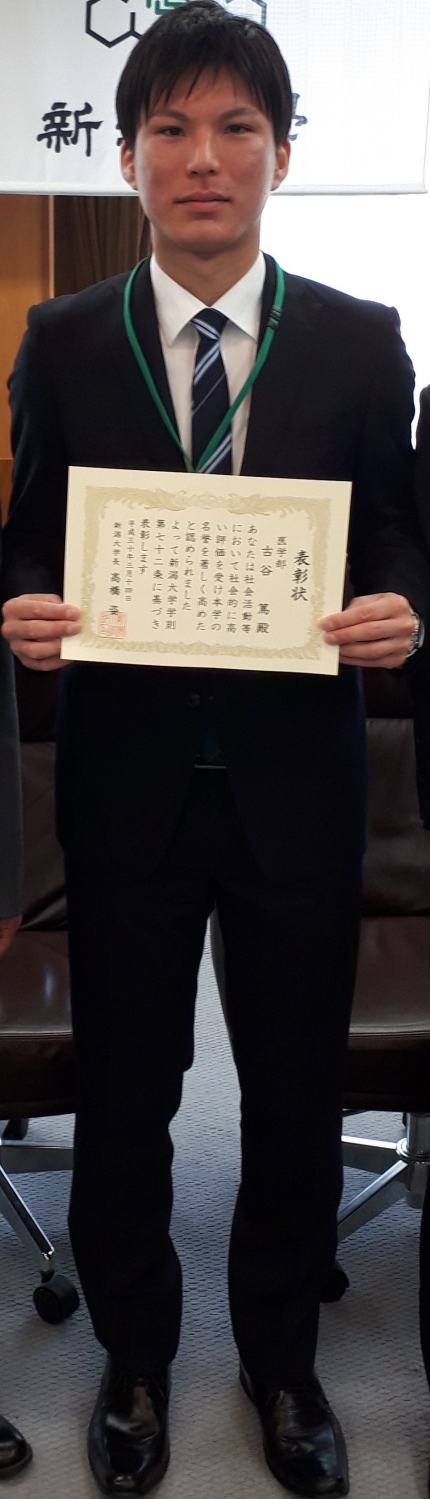 新
學
表彰状
医学部
古谷 篤 殿
あなたは社会活動等
において社会的に高
い評価を受け本学の
名誉を著しく高めた
と認められました
よって新潟大学学則
第七十二条に基づき
表彰します
平成三十年三月十四日
新潟大学長 高橋 姿